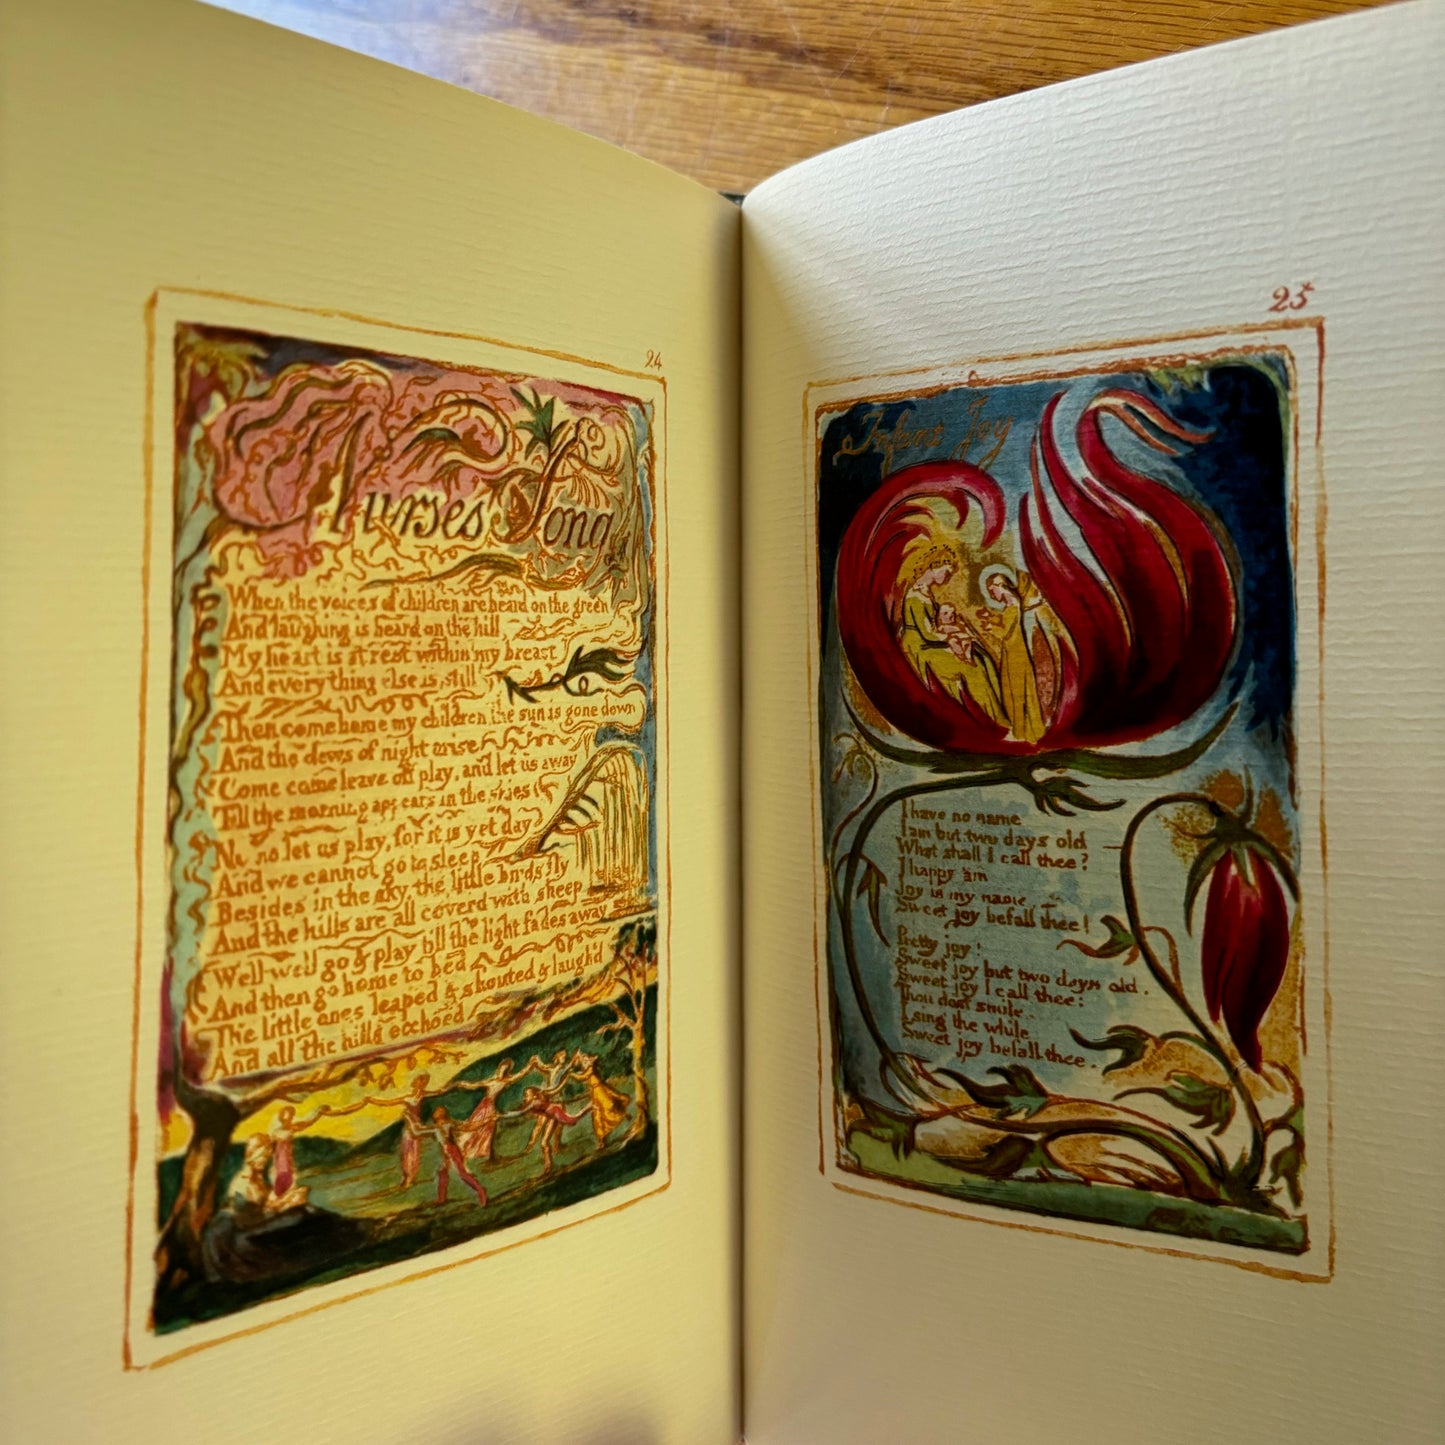 24
Nurses Song
When the voices of children are heard on the green
And laughing is heard on the hill
My heart is at rest within my breast
And every thing else is still
Then come home my children the sun is gone down
And the dews of night arise
Come come leave off play, and let us away
Till the morning appears in the skies
No no let us play, for it is yet day
And we cannot go to sleep
Besides in the sky, the little birds fly
And the hills are all coverd with sheep
Well well go & play till the light fades away
And then go home to bed
The little ones leaped & shouted & laugh'd
And all the hills ecchoed
25
Infant Joy
I have no name
I am but two days old
What shall I call thee?
I happy am
Joy is my name
Sweet joy befall thee!
Pretty joy!
Sweet joy but two days old.
Sweet joy I call thee:
Thou dost smile.
I sing the while
Sweet joy befall thee.